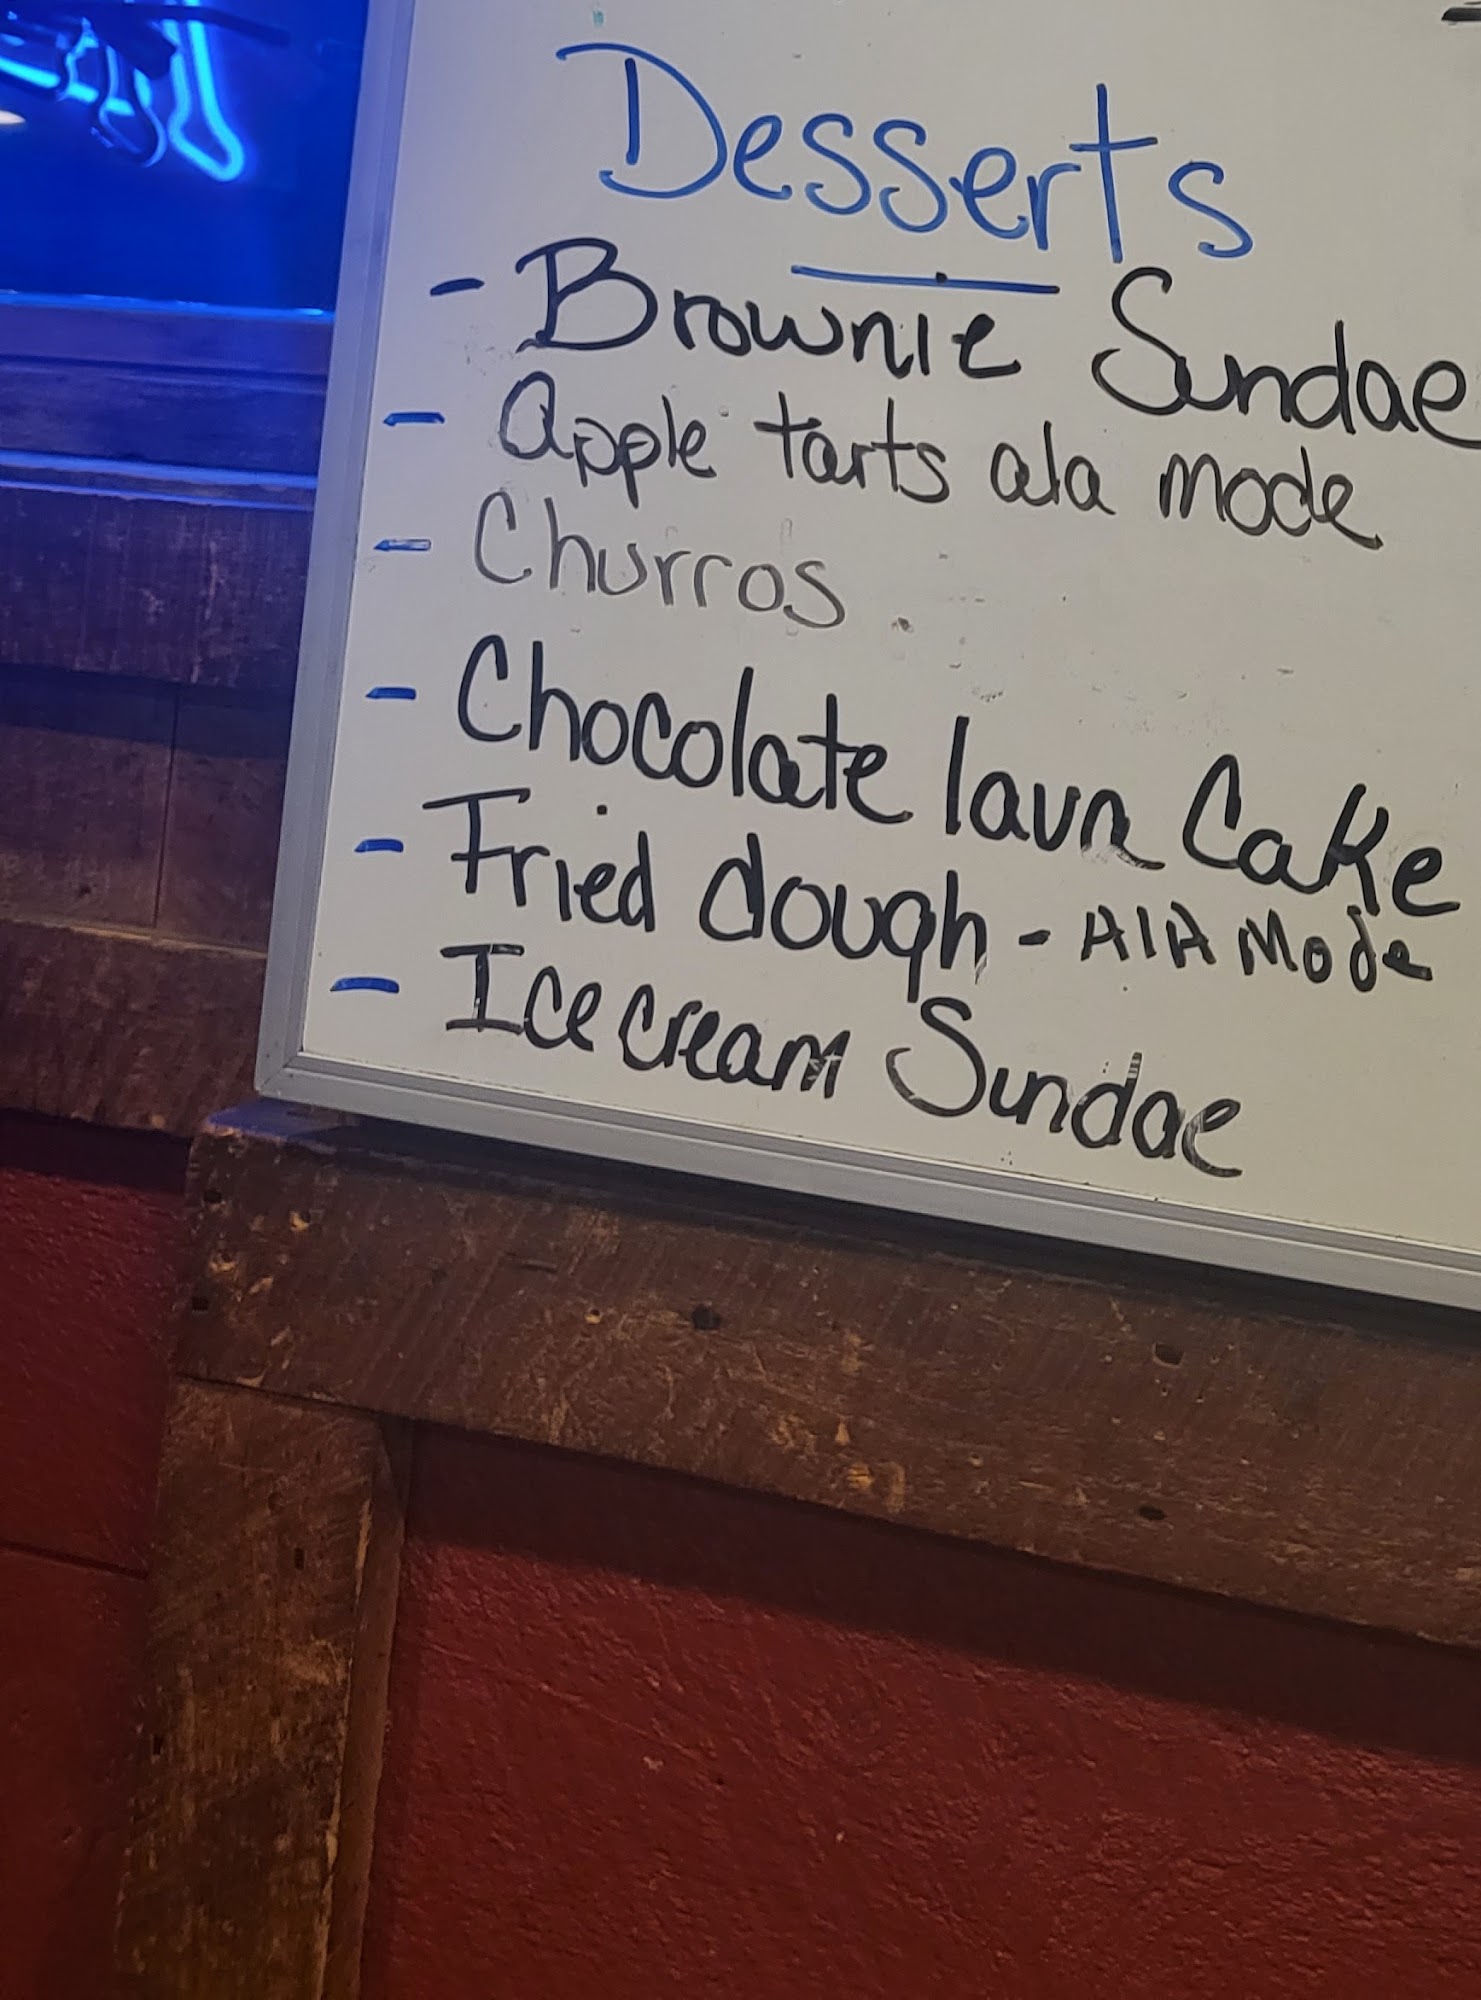 Desserts
- Brownie Sundae
- Apple tarts ala mode
- Churros
- Chocolate lava Cake
- Fried dough - AlA Mode
- Ice cream Sundae